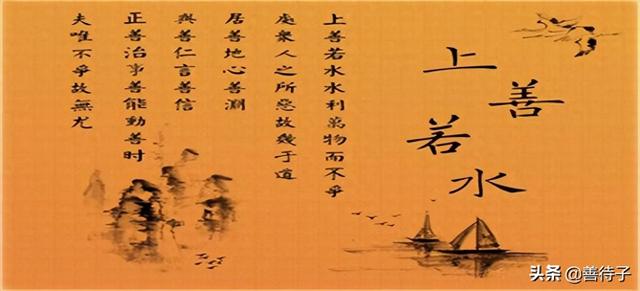 上善若水
上善若水水利萬物而不爭
處衆人之所惡故幾于道
居善地心善淵
與善仁言善信
正善治事善能動善时
夫唯不爭故無尤
头条 @善待子